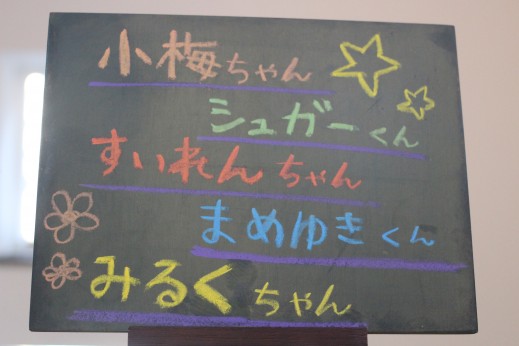 小梅ちゃん
シュガーくん
すいれんちゃん
まめゆきくん
みるくちゃん